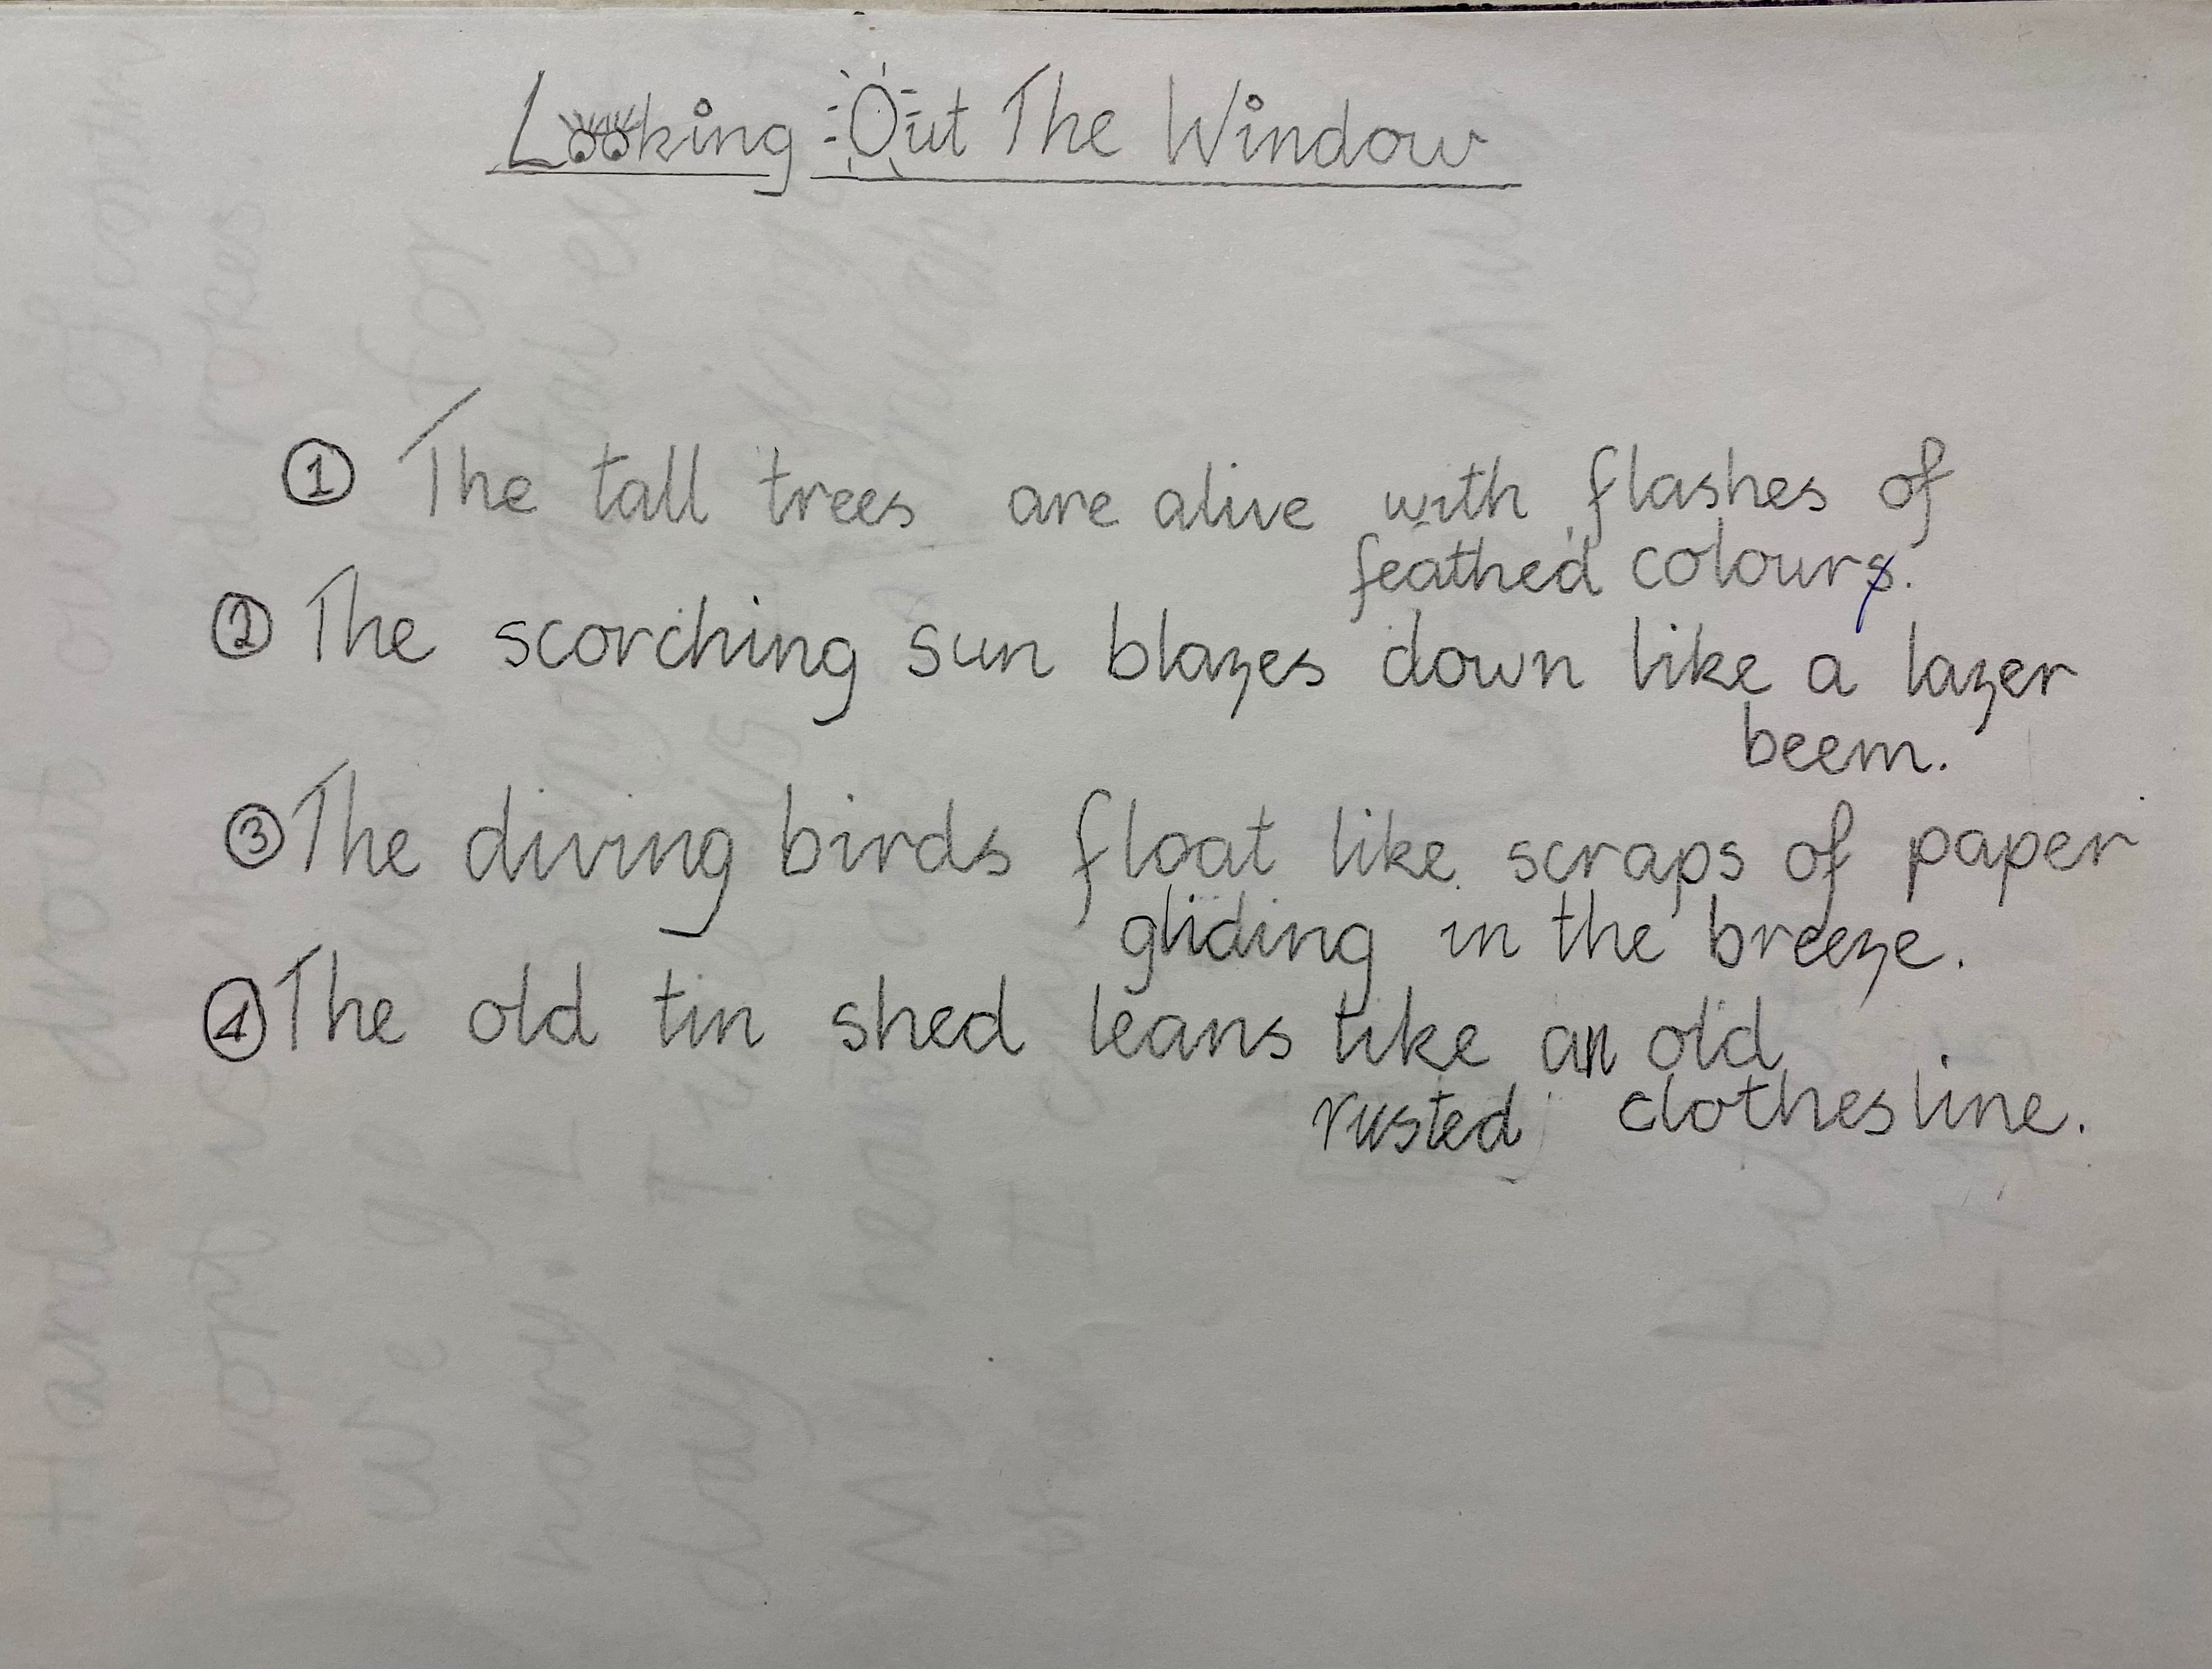 Looking Out The Window
① The tall trees are alive with flashes of
feathed colours.
② The scorching sun blazes down like a lazer
beem.
③ The diving birds float like scraps of paper
gliding in the breeze.
④ The old tin shed leans like an old
rusted clothesline.